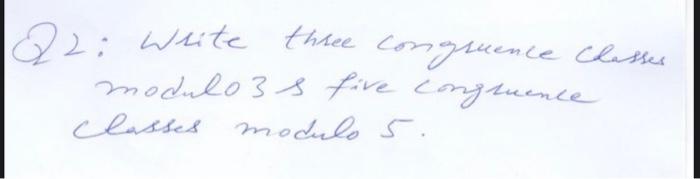 Q2: Write three congruence classes
modulo 3 & five congruence
classes modulo 5.